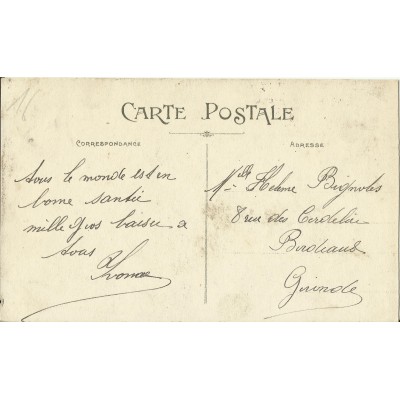 CARTE POSTALE
CORRESPONDANCE
ADRESSE
tous le monde est en
bone santée
mille gros baiser a
tous
Yvonne
Mlle Helene
8 rue des
Bordeaux
Gironde